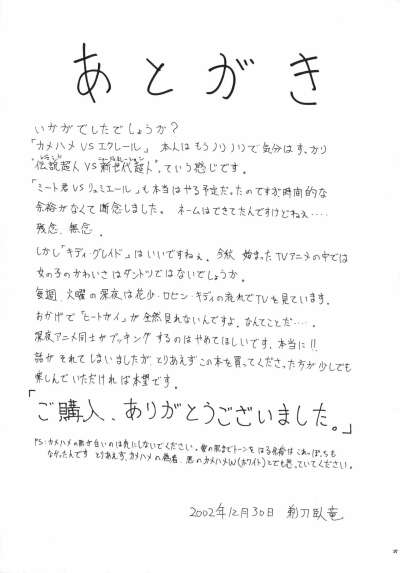 あとがき
いかがでしたでしょうか?
「カメハメVSエクレール」 本人はもうノリノリで気分はすっかり
"伝説超人VS新世代超人"。っていう感じです。
「ミート君VSリュミエール」も本当はやる予定だったのですが時間的な
余裕がなくて断念しました。 ネームはできてたんですけどねぇ‥‥
残念、無念。
しかし「キディ・グレイド」はいいですねぇ。今秋 始まったTVアニメの中では
女の子のかわいさはダントツではないでしょうか。
毎週、火曜の深夜は花少・ロビン・キディの流れでTVを見ています。
おかげで「ヒートガイ」が全然見れないんですよ、なんてことだ‥‥。
深夜アニメ同士がブッキングするのはやめてほしいです、本当に!!
話がそれてしまいましたが、とりあえずこの本を買ってくださった方が少しでも
楽しんでいただければ本望です。
「ご購入、ありがとうございました。」
PS:カメハメの肌が白いのは気にしないでください。俺の肌までトーンをはる余裕はこれっぽっちも
なかったんです とりあえず、カメハメの偽者、悪のカメハメW(ホワイト)とでも思っていてください。
2002年12月30日 剃刀臥竜